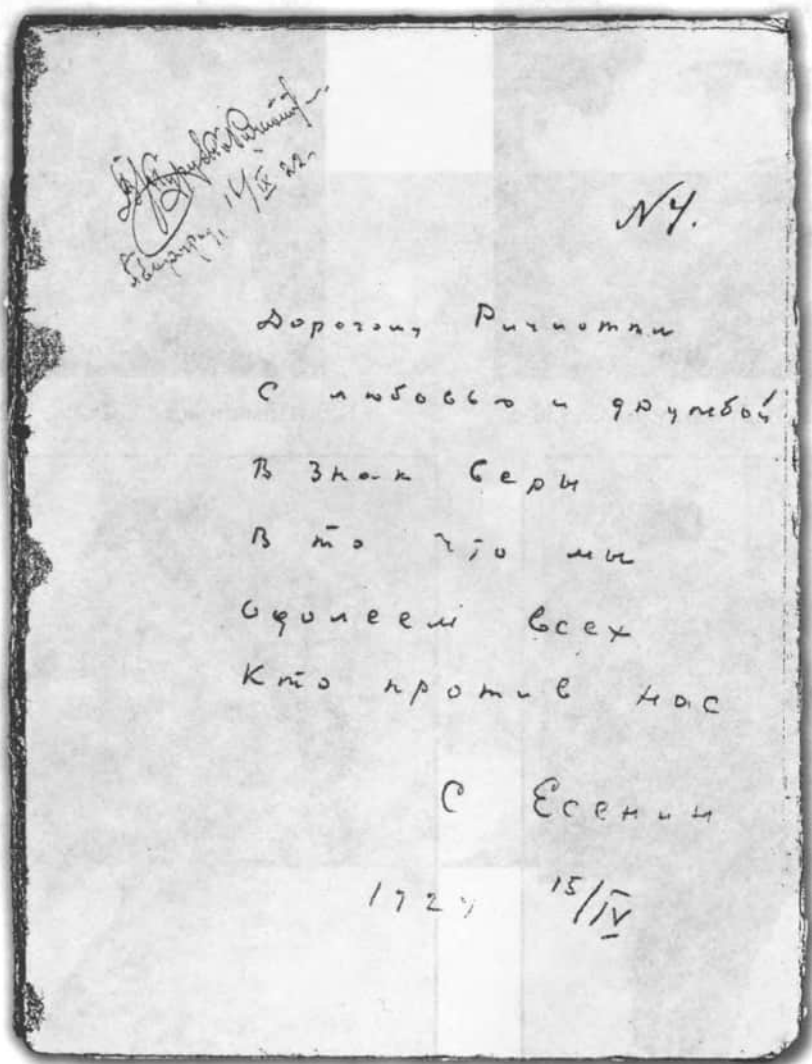 14/IX 22 г.
N 4.
Дорогому Ричиотти
С любовью и дружбой
В знак веры
В то что мы
Одолеем всех
Кто против нас
С Есенин
1924 15/IV